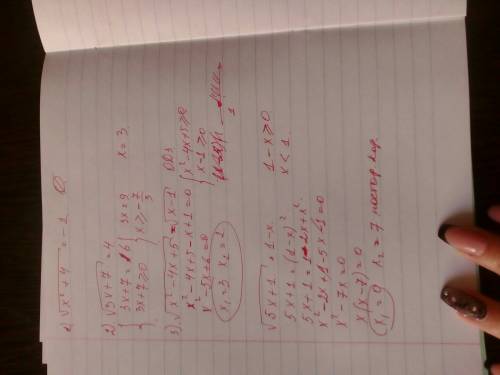 1) √x²+4 = -1 ∅
2) √3x+7 = 4
{ 3x+7 = 16 { 3x = 9 x = 3
{ 3x+7 ≥ 0 { x ≥ -7/3
3) √x²-4x+5 = √x-1 ОДЗ
x²-4x+5-x+1=0 { x²-4x+5≥0
x²-5x+6=0 { x-1≥0
x₁=3 x₂=2 1
√5x+1 = 1-x. 1-x≥0
5x+1=(1-x)² x<1.
5x+1=1-2x+x²
x²-2x+1-5x-1=0
x²-7x=0
x(x-7)=0
x₁=0 x₂=7 постор кор.